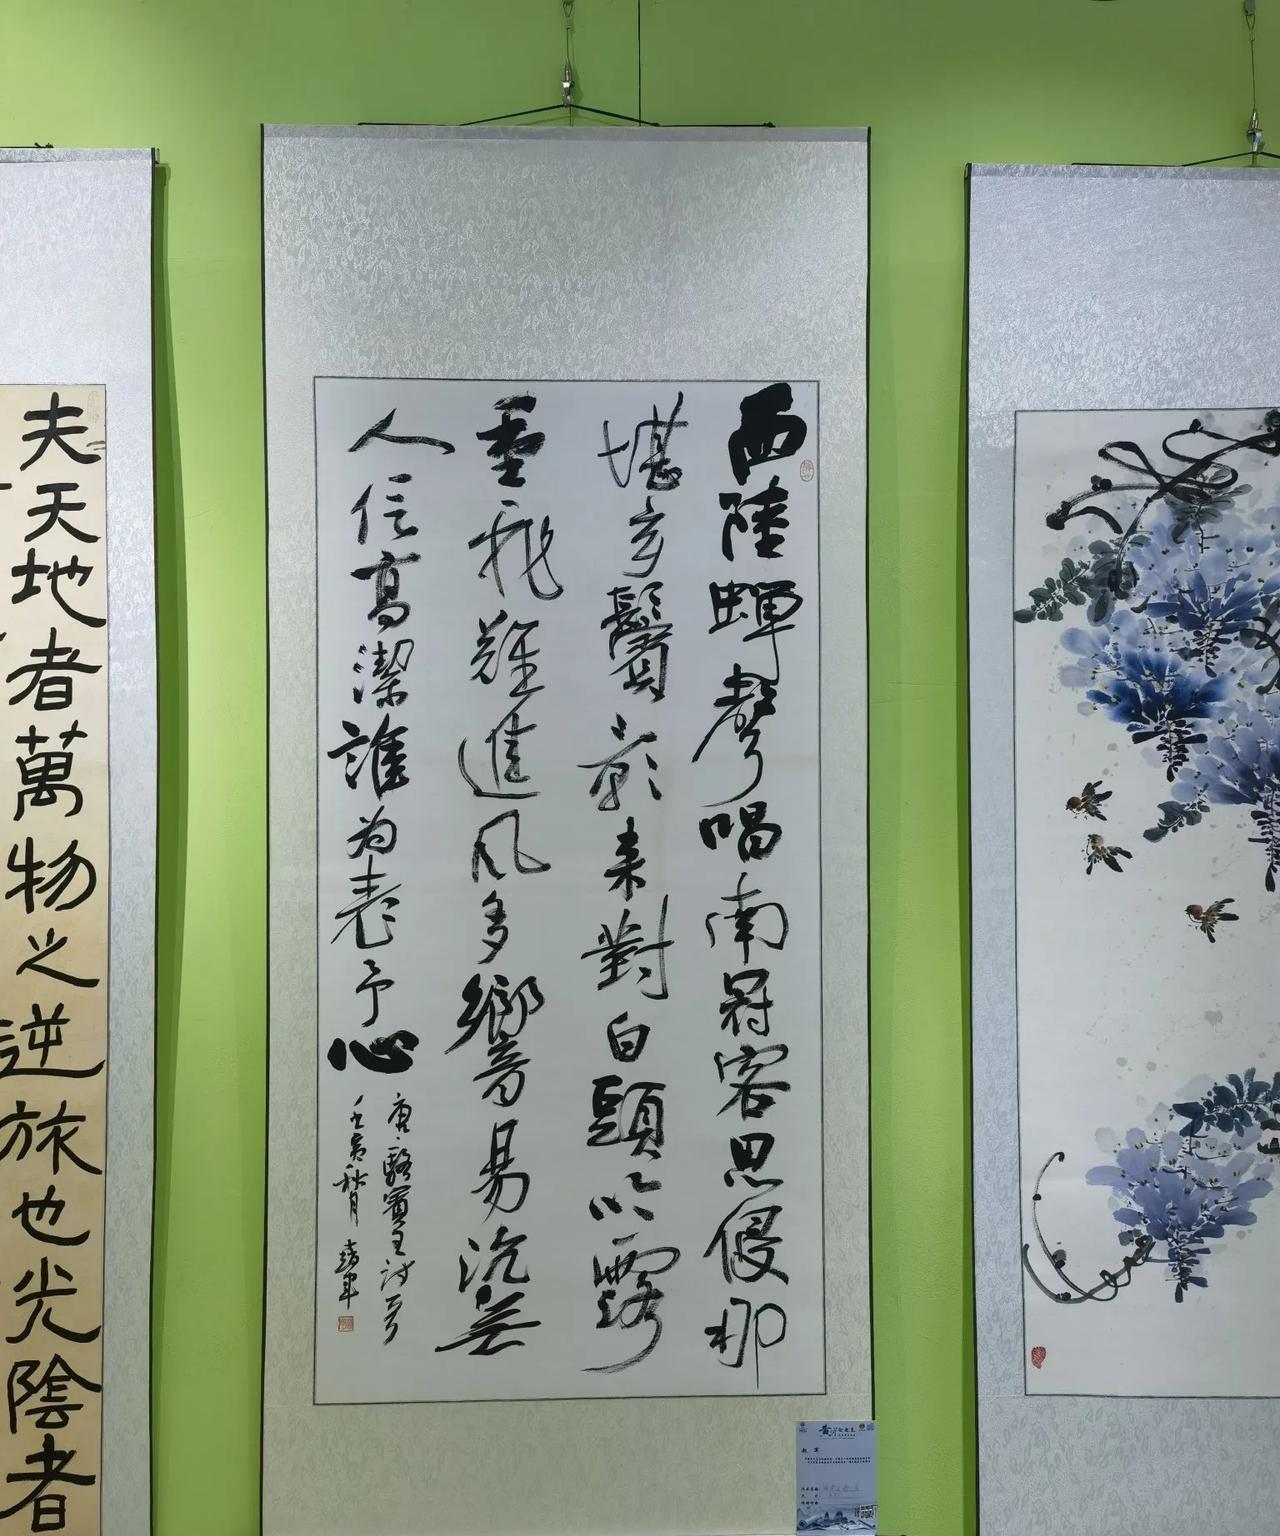 西陸蟬聲唱南冠客思侵那
堪玄鬢影来對白頭吟露
重飛難進風多響易沉無
人信高潔誰为表予心
唐·駱賓王詩一首
壬寅秋月
夫天地者萬物之逆旅也光陰者